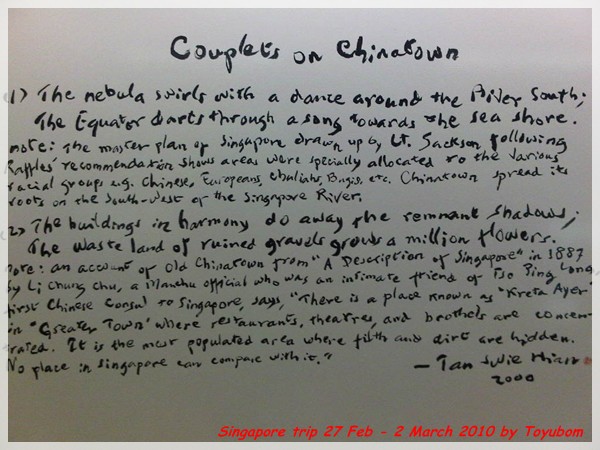 Couplets on Chinatown
1) The nebula swirls with a dance around the River South;
The Equator darts through a song towards the sea shore.
note: The master plan of Singapore drawn up by Lt. Jackson following
Raffles' recommendation shows areas were specially allocated to the various
racial groups e.g. Chinese, Europeans, Chuliahs, Bugis, etc. Chinatown spread its
roots on the South-West of the Singapore River.
2) The buildings in harmony do away the remnant shadows;
The waste land of ruined gravels grows a million flowers.
note: an account of Old Chinatown from "A Description of Singapore" in 1887
by Li Chung Chu, a Manchu official who was an intimate friend of Tso Ping Long
first Chinese Consul to Singapore, says, "There is a place known as "Kreta Ayer"
in "Greater Town" where restaurants, theatres, and brothels are concen-
rated. It is the most populated area where filth and dirt are hidden.
No place in Singapore can compare with it."
— Tan Swie Hian
2000
Singapore trip 27 Feb - 2 March 2010 by Toyubom